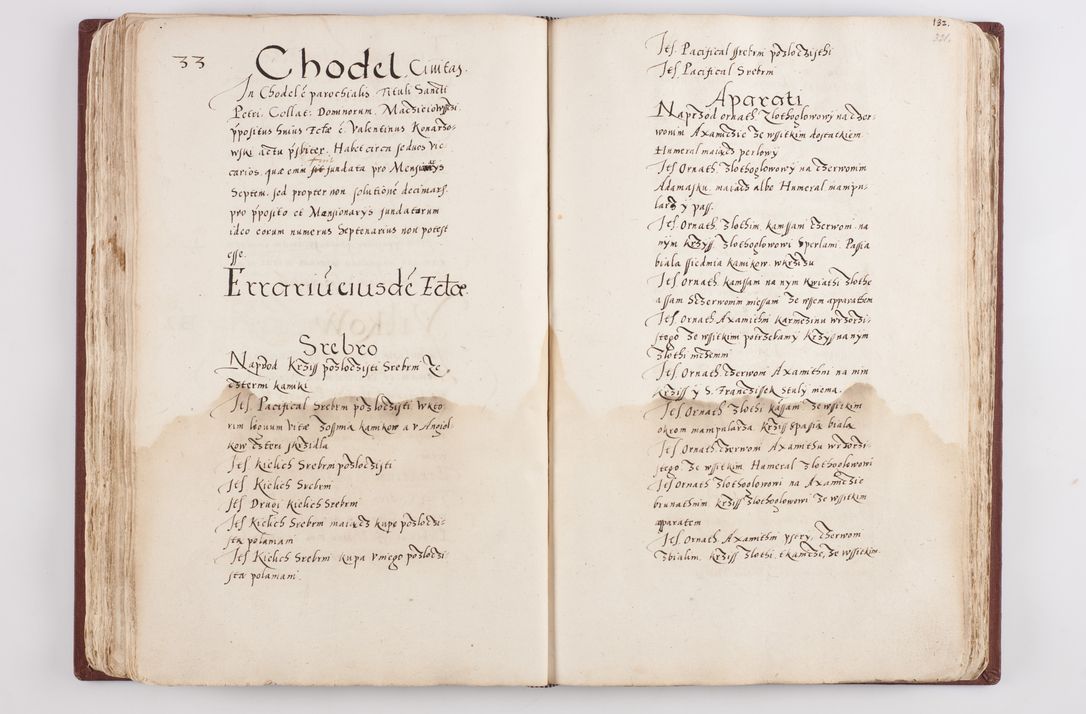 33
Chodel. Ciuitas.
In Chodel ē parochialis Tituli Sancti
Petri. Collat: Domnorum. Maczieiowski
p̄positus huius Ecłæ ē. Valentinus Konarzo-
wski actu p̄sbiter. Habet circa se duos vic
carios. quæ enim fundata pro Mensionarys
Septem. sed propter non solutionē decimars.
pro p̄posito et Mansionarys fundatarum
ideo eorum numerus Septenarius non potest
esse.
Errariū eiusdē Ecłæ.
Srebro
Naprod Krziss poszloczisti Srebrni ze
czterm kamki
Ité Pacifical Srebrni poszloczisti w kto
rim lignum vitæ
kow czteri skrzidla
Ité Kielich Srebrni poszloczisti
Ité Kielich Srebrni
Ité Drugi Kielich Srebrni
Ité Kielich Srebrni maiącz kupe poszloczi-
sta polamani
Ité Kielich Srebrni kupa v niego poszloczi
sta polamani.
132.
Ité Pacifical Srebrni poszloczisthi
Ité Pacifical Srebrni
Aparati
Naprzod ornath Zlothoglowowy na czer-
wonim Axamiczie ze wssitkim dostatkiem
Humeral maiącz perlowy
Ité Ornath Zlothoglowowy na czerwonim
Adamasku. maiącz albe Humeral manipu-
larz y pass.
Ité Ornath Zlothim kamssam czerwom. na
nym krzyss Zlothoglowowi sperlami. Passia
biala ssiedmia kamkow. w krzizu
Ité Ornath kamssam na nym Kwiathi zlothe
assam sczerwonim miessam ze wssem apparatem
Ité Ornath Axamithni karmezinu wrzorzi-
stego ze wssitkim potrzebamy Krzyss na nym
zlothi niczemni
Ité Ornath czerwom Axamithni na nim
krziss y S. Franczissek Stuly niema.
Ité Ornath zlothi kassam ze wssitkim
okrom manipularza. Krziss spassia biala
Ité Ornath czerwoni Axamithu wzorzi-
stego ze wssitkim Humeral zlothoglowowi
Ité Ornath zlothoglowowi na Axamiczie
brunathnim. krziss zlothoglowowi ze wssitkim
apparatem
Ité Ornath Axamithni ysery, czerwom
zbialim. krziss zlothi. tkamcze, ze wssitkim.